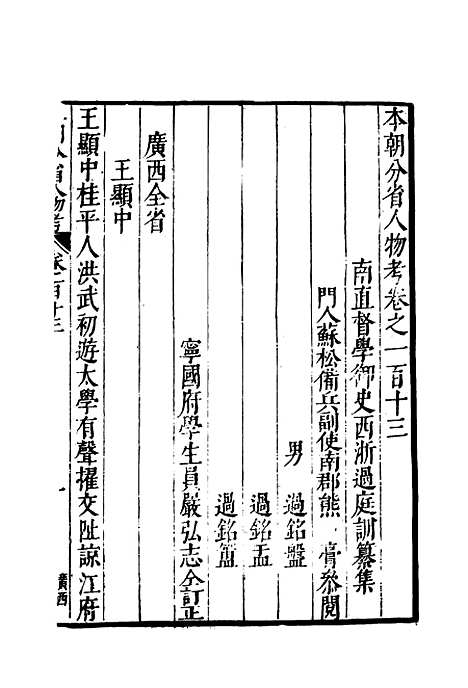 本朝分省人物考卷之一百十三
南直督學御史西浙過庭訓纂集
門人蘇松俻兵副使南郡熊　膏叅閱
男　過銘盤
過銘盂
過銘簠
寧國府學生員嚴弘志仝訂正
廣西全省
王顯中
王顯中桂平人洪武初遊太學有聲擢交趾諒江府
分省人物考　卷一百十三　一　廣西